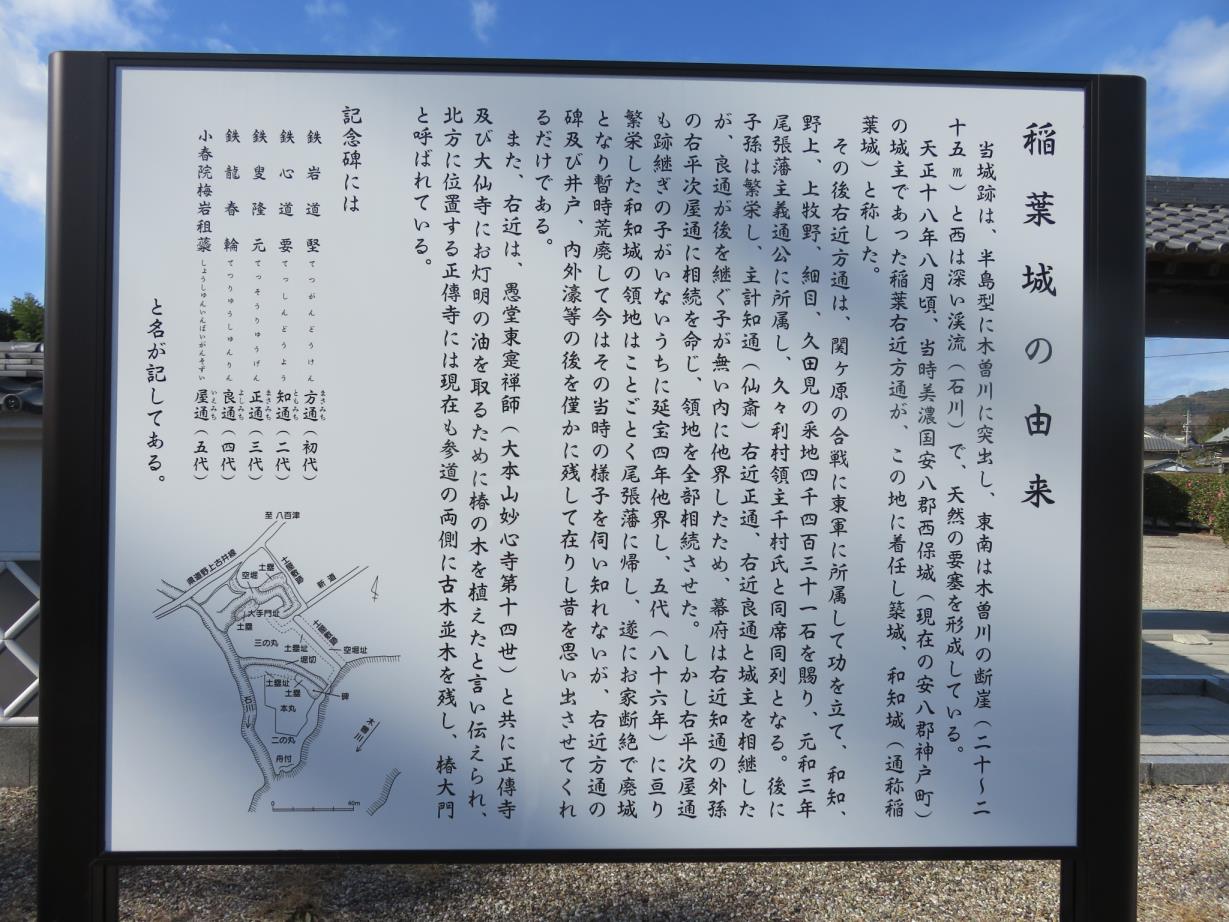 稲葉城の由来
当城跡は、半島型に木曽川に突出し、東南は木曽川の断崖(二十〜二
十五m)と西は深い渓流(石川)で、天然の要塞を形成している。
天正十八年八月頃、当時美濃国安八郡西保城(現在の安八郡神戸町)
の城主であった稲葉右近方通が、この地に着任し築城、和知城(通称稲
葉城)と称した。
その後右近方通は、関ヶ原の合戦に東軍に所属して功を立て、和知、
野上、上牧野、細目、久田見の采地四千四百三十一石を賜り、元和三年
尾張藩主義通公に所属し、久々利村領主千村氏と同席同列となる。後に
子孫は繁栄し、主計知通(仙斎)右近正通、右近良通と城主を相継した
が、良通が後を継ぐ子が無い内に他界したため、幕府は右近知通の外孫
の右平次屋通に相続を命じ、領地を全部相続させた。しかし右平次屋通
も跡継ぎの子がいないうちに延宝四年他界し、五代(八十六年)に亘り
繁栄した和知城の領地はことごとく尾張藩に帰し、遂にお家断絶で廃城
となり暫時荒廃して今はその当時の様子を伺い知れないが、右近方通の
碑及び井戸、内外濠等の後を僅かに残して在りし昔を思い出させてくれ
るだけである。
また、右近は、愚堂東寔禅師(大本山妙心寺第十四世)と共に正傳寺
及び大仙寺にお灯明の油を取るために椿の木を植えたと言い伝えられ、
北方に位置する正傳寺には現在も参道の両側に古木並木を残し、椿大門
と呼ばれている。
記念碑には
鉄岩道堅 てつがんどうけん 方通(初代) まさみち
鉄心道要 てっしんどうよう 知通(二代) ともみち
鉄叟隆元 てっそうりゅうげん 正通(三代) まさみち
鉄龍春輪 てつりゅうしゅんりん 良通(四代) よしみち
小春院梅岩祖蘂 しょうしゅんいんばいがんそずい 屋通(五代) いえみち
と名が記してある。
至 八百津
県道野上古井線
土塁
空堀
新道
大手門址
土塁
三の丸
土塁址
堀切
空堀址
土塁址
土塁
碑
本丸
石川
二の丸
舟付
木曽川
0
40m